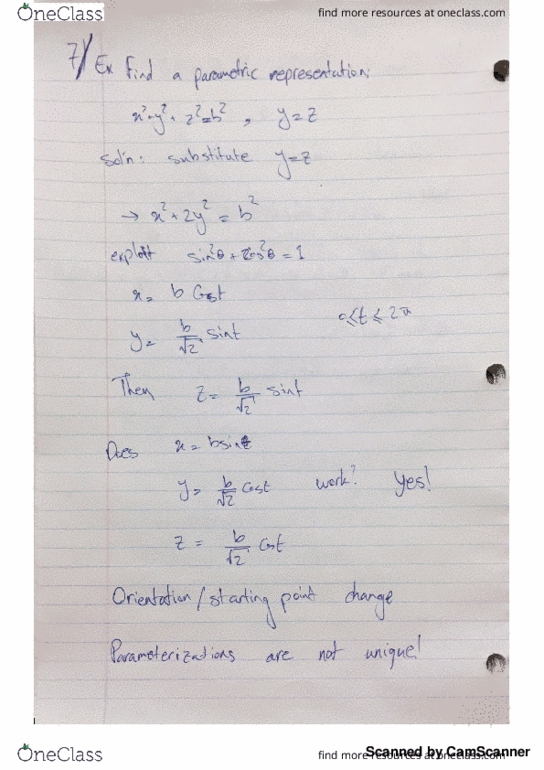 OneClass
find more resources at oneclass.com
7/ Ex Find a parametric representation:
x²+y²+z²=b² , y=z
Sol'n: substitute y=z
→ x²+2y²=b²
exploit sin²θ+cos²θ=1
x= b Cost
y= b/√2 sint 0≤t≤2π
Then z= b/√2 sint
Does x= bsint
y= b/√2 Cost work? yes!
z= b/√2 Cost
Orientation/starting point change
Parameterizations are not unique!
OneClass
find more resources at oneclass.com
Scanned by CamScanner